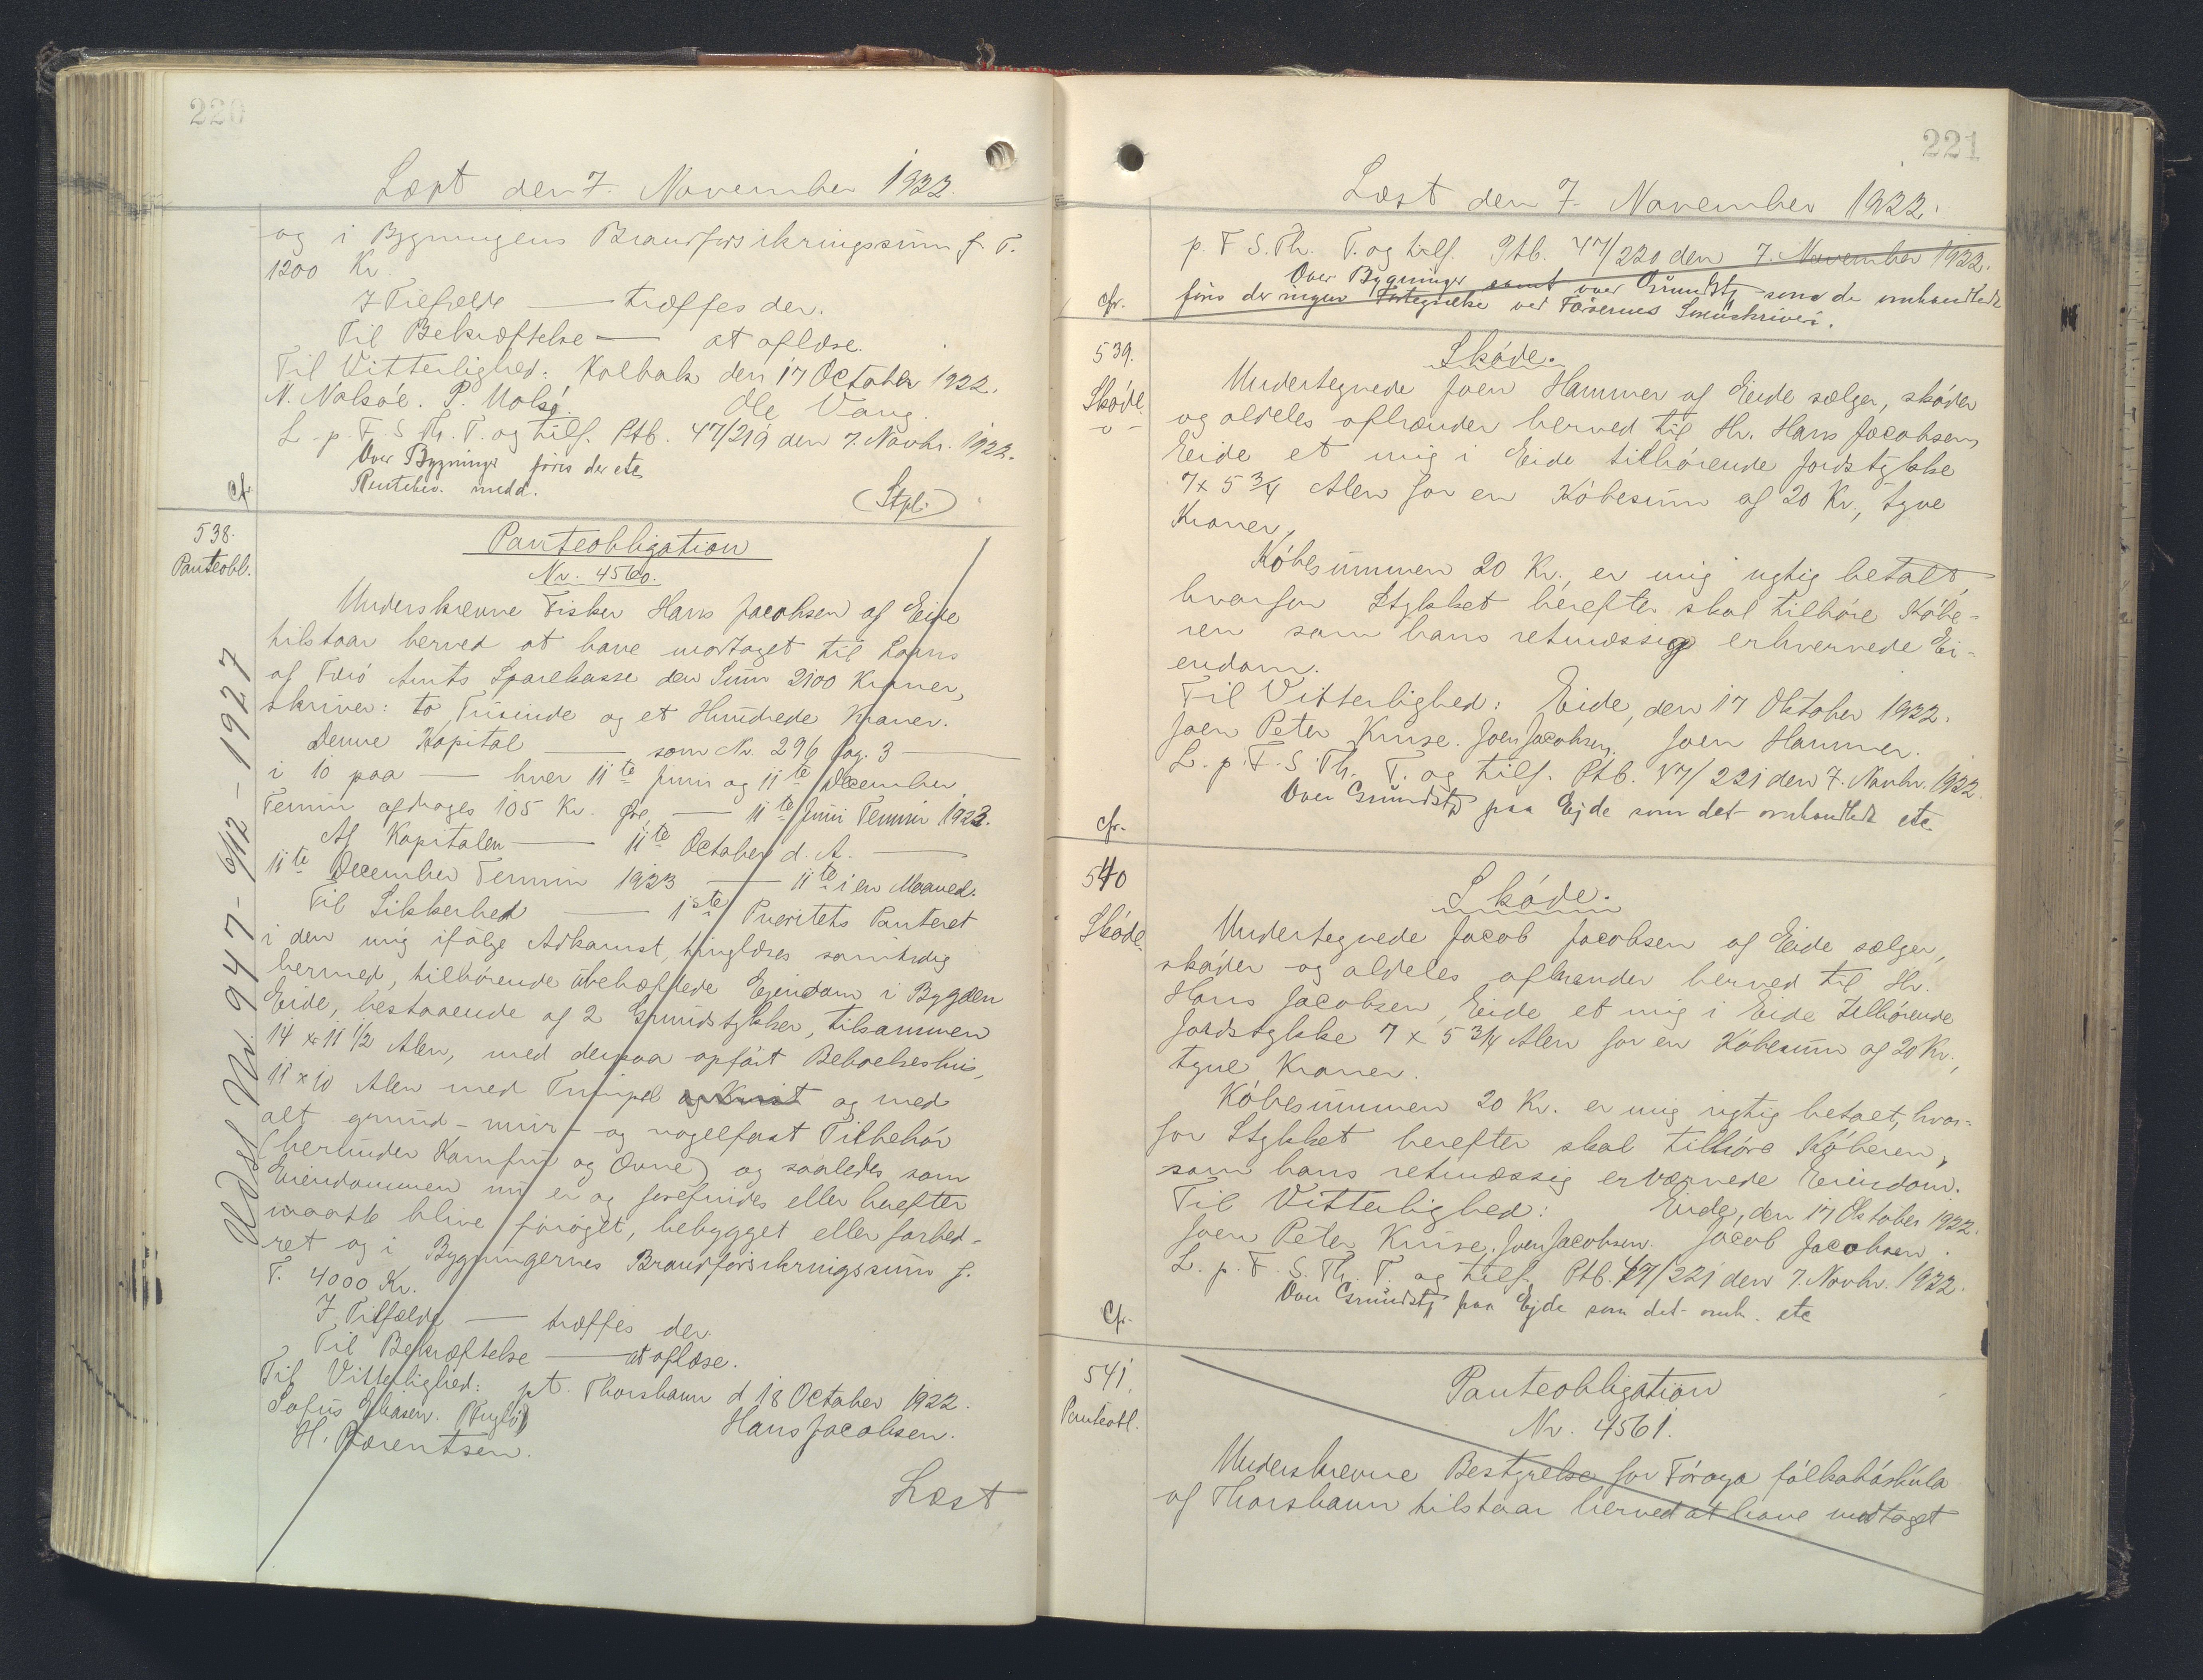 220
Læst den 7. November 1922.
og i Bygningens Brandforsikringssum f. T.
1200 Kr.
I Tilfælde — træffes der.
Til Bekræftelse — at oplæse.
Til Vitterlighed: Kolbak den 17 October 1922.
N. Nolsøe. P. Nolsø. Ole Vang.
L. p. F. S. Th. T. og tilf. Ptb. 47/219 den 7. Novbr. 1922.
Over Bygninger føres der etc
cfr. Rentebev. medd. (Stpl.)
538.
Panteobl.
Panteobligation
Nr. 4560.
Underskrevne Fisker Hans Jacobsen af Eide
tilstaar herved at have modtaget til Laans
af Færø Amts Sparekasse den Sum 2100 Kroner,
skriver: to Tusinde og et Hundrede Kroner.
Denne Kapital — som Nr. 296 Pag. 3 —
i 10 paa — hver 11te Juni og 11te December
Termin afdrages 105 Kr. Øre, — 11te Juni Termin 1923.
Af Kapitalen — 11te October d. A. —
11te December Termin 1923 — 11te i en Maaned.
Til Sikkerhed — 1ste Prioritets Panteret
i den mig ifølge Adkomst, tinglæses samtidig
hermed, tilhørende ubehæftede Ejendom i Bygden
Eide, bestaaende af 2 Grundstykker, tilsammen
14 x 11 1/2 Alen, med derpaa opført Beboelseshus,
11 x 10 Alen med Trempel og Kvist og med
alt grund- mur- og nagelfast Tilbehør
(herunder Komfur og Ovne) og saaledes som
Eiendommen nu er og forefindes eller herefter
maatte blive forøget, bebygget eller forbed-
ret og i Bygningernes Brandforsikringssum f.
T. 4000 Kr.
I Tilfælde — træffes der.
Til Bekræftelse — at oplæse.
Til Vitterlighed: pt. Thorshavn d 18 October 1922.
Sofus Hans Jacobsen.
H. Børentsen.
Læst
Udsl Nr. 947 - 6/12 - 1927
221
Læst den 7. November 1922.
p. F S. Th. T. og tilf. Ptb. 47/220 den 7. November 1922.
Over Bygninger samt over Grundstk som de omhandlede
cfr. føres der ingen Fortegnelse ved Færøernes Sorenskriveri.
539.
Skøde.
Skøde.
Undertegnede Joen Hammer af Eide sælger, skøder
og aldeles afhænder herved til Hr. Hans Jacobsen,
Eide et mig i Eide tilhørende Jordstykke
7 x 5 3/4 Alen for en Købesum af 20 Kr., tyve
Kroner,
Købesummen 20 Kr., er mig rigtig betalt,
hvorfor Stykket herefter skal tilhøre Købe-
ren som hans retmæssig erhvervede Ei-
endom.
Til Vitterlighed: Eide, den 17 Oktober 1922.
Joen Peter Kruse. Joen Jacobsen. Joen Hammer.
L. p. F. S. Th. T. og tilf. Ptb. 47/221 den 7. Novbr. 1922.
cfr. Over Grundstk paa Ejde som det omhandlede etc
540
Skøde.
Skøde.
Undertegnede Jacob Jacobsen af Eide sælger,
skøder og aldeles afhænder herved til Hr.
Hans Jacobsen, Eide et mig i Eide tilhørende
Jordstykke 7 x 5 3/4 Alen for en Købesum af 20 Kr.,
tyve Kroner.
Købesummen 20 Kr. er mig rigtig betalt, hvor-
for Stykket herefter skal tilhøre Køberen,
som hans retmæssig erværvede Eiendom.
Til Vitterlighed: Eide, den 17 Oktober 1922.
Joen Peter Kruse. Joen Jacobsen. Jacob Jacobsen.
L. p. F. S. Th. T. og tilf. Ptb. 47/221 den 7. Novbr. 1922.
Cfr. Over Grundstk paa Ejde som det omh. etc
541.
Panteobl.
Panteobligation
Nr. 4561.
Underskrevne Bestyrelse for Føroya fólkaháskúla
af Thorshavn tilstaar herved at have modtaget